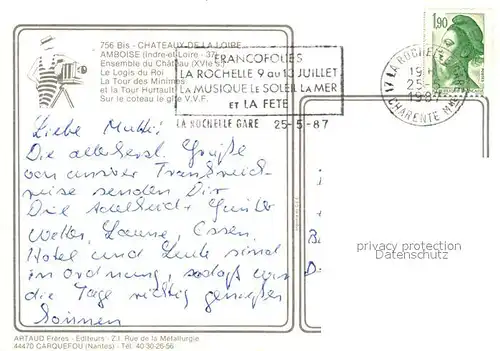 756 Bis - CHATEAUX DE LA LOIRE
AMBOISE (Indre-et-Loire - 37)
Ensemble du Château (XVIe s.)
Le Logis du Roi
La Tour des Minimes
et la Tour Hurtault
Sur le coteau le gîte V.V.F.
FRANCOFOLIES
LA ROCHELLE 9 au 13 JUILLET
LA MUSIQUE LE SOLEIL LA MER
ET LA FETE
LA ROCHELLE GARE 25-5-87
1,90
17 LA ROCHELLE
19 H
25
1987
CHARENTE MME
Liebe Mutti!
Die allerherzl. Grüße
von unserer Frankreich-
reise senden Dir
Adelheid Günter
Wetter, Laune, Essen,
Hotel und Leute sind
in Ordnung, sodaß wir
die Tage richtig genießen
können
privacy protection
Datenschutz
ARTAUD Frères - Editeurs - Z.I. Rue de la Métallurgie
44470 CARQUEFOU (Nantes) - Tél. 40-30-26-56